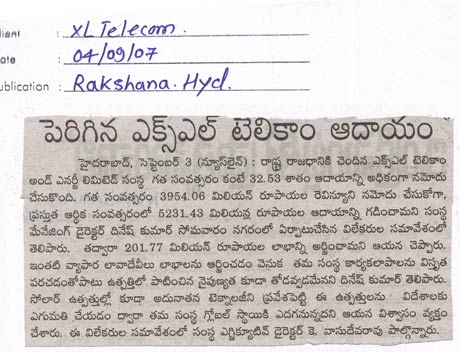 lient : XL Telecom.
ate : 04/09/07
ublication : Rakshana. Hyd.
పెరిగిన ఎక్స్ఎల్ టెలికాం ఆదాయం
హైదరాబాద్, సెప్టెంబర్ 3 (న్యూస్‌లైన్) : రాష్ట్ర రాజధానికి చెందిన ఎక్స్ఎల్ టెలికాం
అండ్ ఎనర్జీ లిమిటెడ్ సంస్థ గత సంవత్సరం కంటే 32.53 శాతం ఆదాయాన్ని అధికంగా నమోదు
చేసుకొంది. గత సంవత్సరం 3954.06 మిలియన్ రూపాయల రెవిన్యుని నమోదు చేసుకోగా,
ప్రస్తుత ఆర్థిక సంవత్సరంలో 5231.43 మిలియన్ల రూపాయల ఆదాయాన్ని గడించామని సంస్థ
మేనేజింగ్ డైరెక్టర్ దినేష్ కుమార్ సోమవారం నగరంలో ఏర్పాటుచేసిన విలేకరుల సమావేశంలో
తెలిపారు. తద్వారా 201.77 మిలియన్ రూపాయల లాభాన్ని ఆర్జించామని ఆయన చెప్పారు.
ఇంతటి వ్యాపార లావాదేవీలు లాభాలను ఆర్జించడం వెనుక తమ సంస్థ కార్యకలాపాలను విస్తృత
పరచడంతోపాటు ఉత్పత్తిలో పాటించిన నైపుణ్యత కూడా తోడవ్వడమేనని దినేష్ కుమార్ తెలిపారు.
సోలార్ ఉత్పత్తుల్లో కూడా అధునాతన టెక్నాలజీని ప్రవేశపెట్టి ఈ ఉత్పత్తులను విదేశాలకు
ఎగుమతి చేయడం ద్వారా తమ సంస్థ గ్లోబల్ స్థాయికి ఎదగనున్నదని ఆయన విశ్వాసం వ్యక్తం
చేశారు. ఈ విలేకరుల సమావేశంలో సంస్థ ఎగ్జిక్యూటివ్ డైరెక్టర్ కె. వాసుదేవరావు పాల్గొన్నారు.